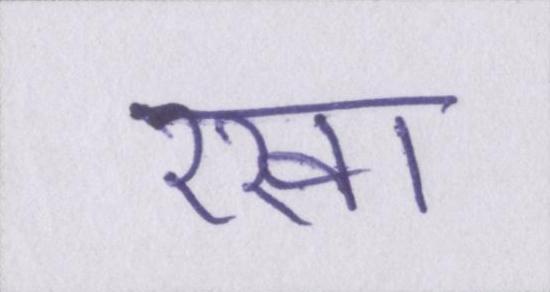 रखा